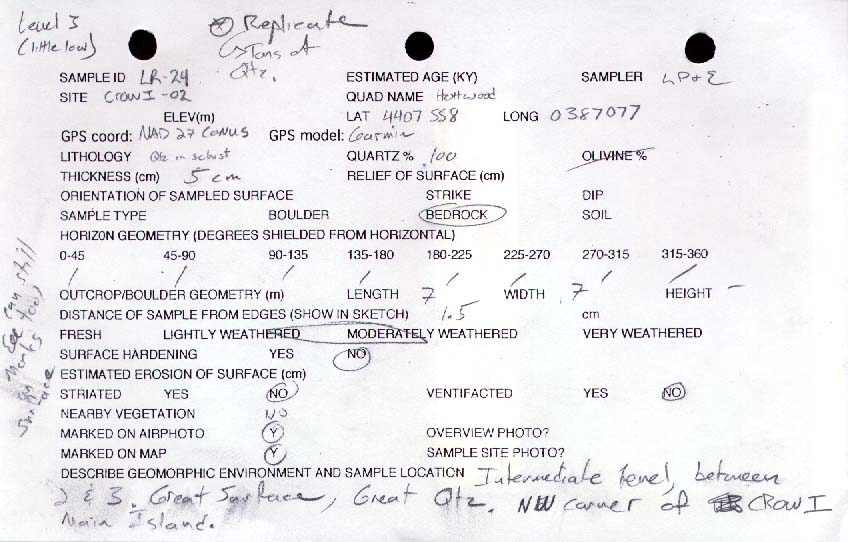 Level 3
(little low)
Replicate
Tons of
Qtz.
SAMPLE ID LR-24 ESTIMATED AGE (KY) SAMPLER LP & E
SITE CROW I -02 QUAD NAME Holtwood
ELEV(m) LAT 4407 558 LONG 0387077
GPS coord: NAD 27 CONUS GPS model: Garmin
LITHOLOGY Qtz in schist QUARTZ % 100 OLIVINE %
THICKNESS (cm) 5 cm RELIEF OF SURFACE (cm)
ORIENTATION OF SAMPLED SURFACE STRIKE DIP
SAMPLE TYPE BOULDER BEDROCK SOIL
HORIZON GEOMETRY (DEGREES SHIELDED FROM HORIZONTAL)
0-45 45-90 90-135 135-180 180-225 225-270 270-315 315-360
/ / / / / / / /
OUTCROP/BOULDER GEOMETRY (m) LENGTH 7 WIDTH 7 HEIGHT –
DISTANCE OF SAMPLE FROM EDGES (SHOW IN SKETCH) 1.5 cm
FRESH LIGHTLY WEATHERED MODERATELY WEATHERED VERY WEATHERED
SURFACE HARDENING YES NO
ESTIMATED EROSION OF SURFACE (cm)
STRIATED YES NO VENTIFACTED YES NO
NEARBY VEGETATION NO
MARKED ON AIRPHOTO Y OVERVIEW PHOTO?
MARKED ON MAP Y SAMPLE SITE PHOTO?
DESCRIBE GEOMORPHIC ENVIRONMENT AND SAMPLE LOCATION Intermediate level, between
2 & 3. Great Surface, Great Qtz. NW corner of CROW I
Main Island.
can still
see too)
marks
surface